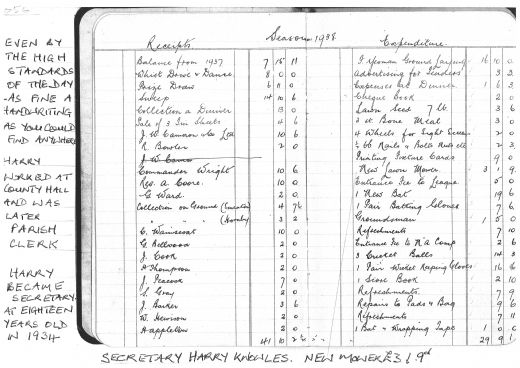 EVEN BY
THE HIGH
STANDARDS
OF THE DAY
-AS FINE A
HANDWRITING
AS YOU COULD
FIND ANYWHERE
HARRY
WORKED AT
COUNTY HALL
AND WAS
LATER
PARISH
CLERK
HARRY
BECAME
SECRETARY
AT EIGHTEEN
YEARS OLD
IN 1934
Season 1938
Receipts
Balance from 1937 7 15 11
Whist Drive & Dance 8 0 0
Prize Draw 6 11 0
Sweep 14 10 6
Collection a Dinner 13 0
Sale of 3 Tea Sheets 4 6
J. W. Cameron & Co Ltd 10 6
R. Bowler 2 0
Commander Wright 10 6
Res. A. Coore. 10 0
G Ward 2 0
Collection on Ground 4 7½
3 2
C. Wainscoat 10 0
G Bellwood 2 0
J. Cook 2 0
Thompson 2 0
J. Peacock 7 0
S. Gray 2 0
J. Barker 3 6
W. Hewison 2 0
Happleton 2 0
41 10 2½
Expenditure.
Ground 16 10 0
Advertising for Tenders 3
Expenses at Dinner 1 6 3
Cheque Book 2 0
Lawn Seed 7 lb 3 6
Bone Meal 3 0
4 Wheels for Sight Screen 2 0
Nails & Bolts Nuts etc 2 3
Printing Fixture Cards 9 0
New Lawn Mower 3 1 9
Entrance Fee to League 5 0
1 New Bat 19 6
1 Pair Batting Gloves 7 6
Groundsman 1 5 0
Refreshments 7 10
Entrance Fee to Comp 2 6
3 Cricket Balls 14 3
1 Pair Wicket Keeping Gloves 16 6
1 Score Book 2 10
Refreshments 7 9
Repairs to Pads & Bag 9 6
Refreshments 7 11
1 Bat & Wrapping Tape 1 0 0
29 9 1
SECRETARY HARRY KNOWLES. NEW MOWER £3 1 9d